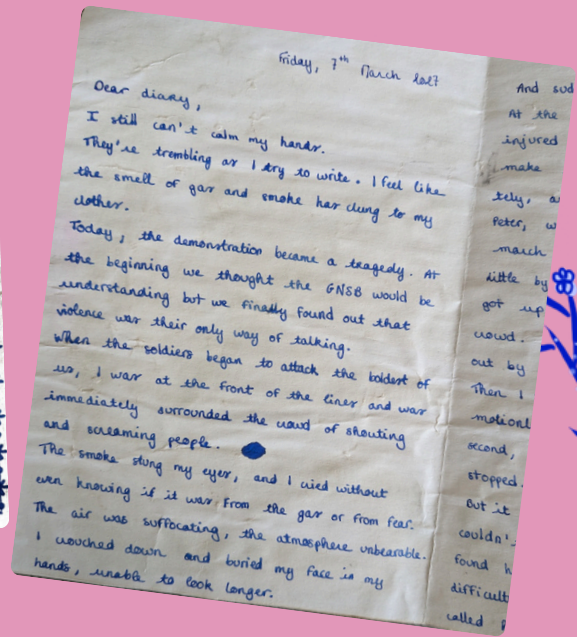 Friday, 7th March
Dear diary,
I still can't calm my hands.
They're trembling as I try to write. I feel like
the smell of gas and smoke has clung to my
clothes.
Today, the demonstration became a tragedy. At
the beginning we thought the GNSB would be
understanding but we finally found out that
violence was their only way of talking.
When the soldiers began to attack the boldest of
us, I was at the front of the lines and was
immediately surrounded the crowd of shouting
and screaming people.
The smoke stung my eyes, and I cried without
even knowing if it was from the gas or from fear.
The air was suffocating, the atmosphere unbearable.
I crouched down and buried my face in my
hands, unable to look longer.
And sud
At the
injured
make
tely, a
Peter, w
march
little by
got up
crowd.
out by
Then I
motionl
second,
stopped.
But it
couldn'
found h
difficult
called